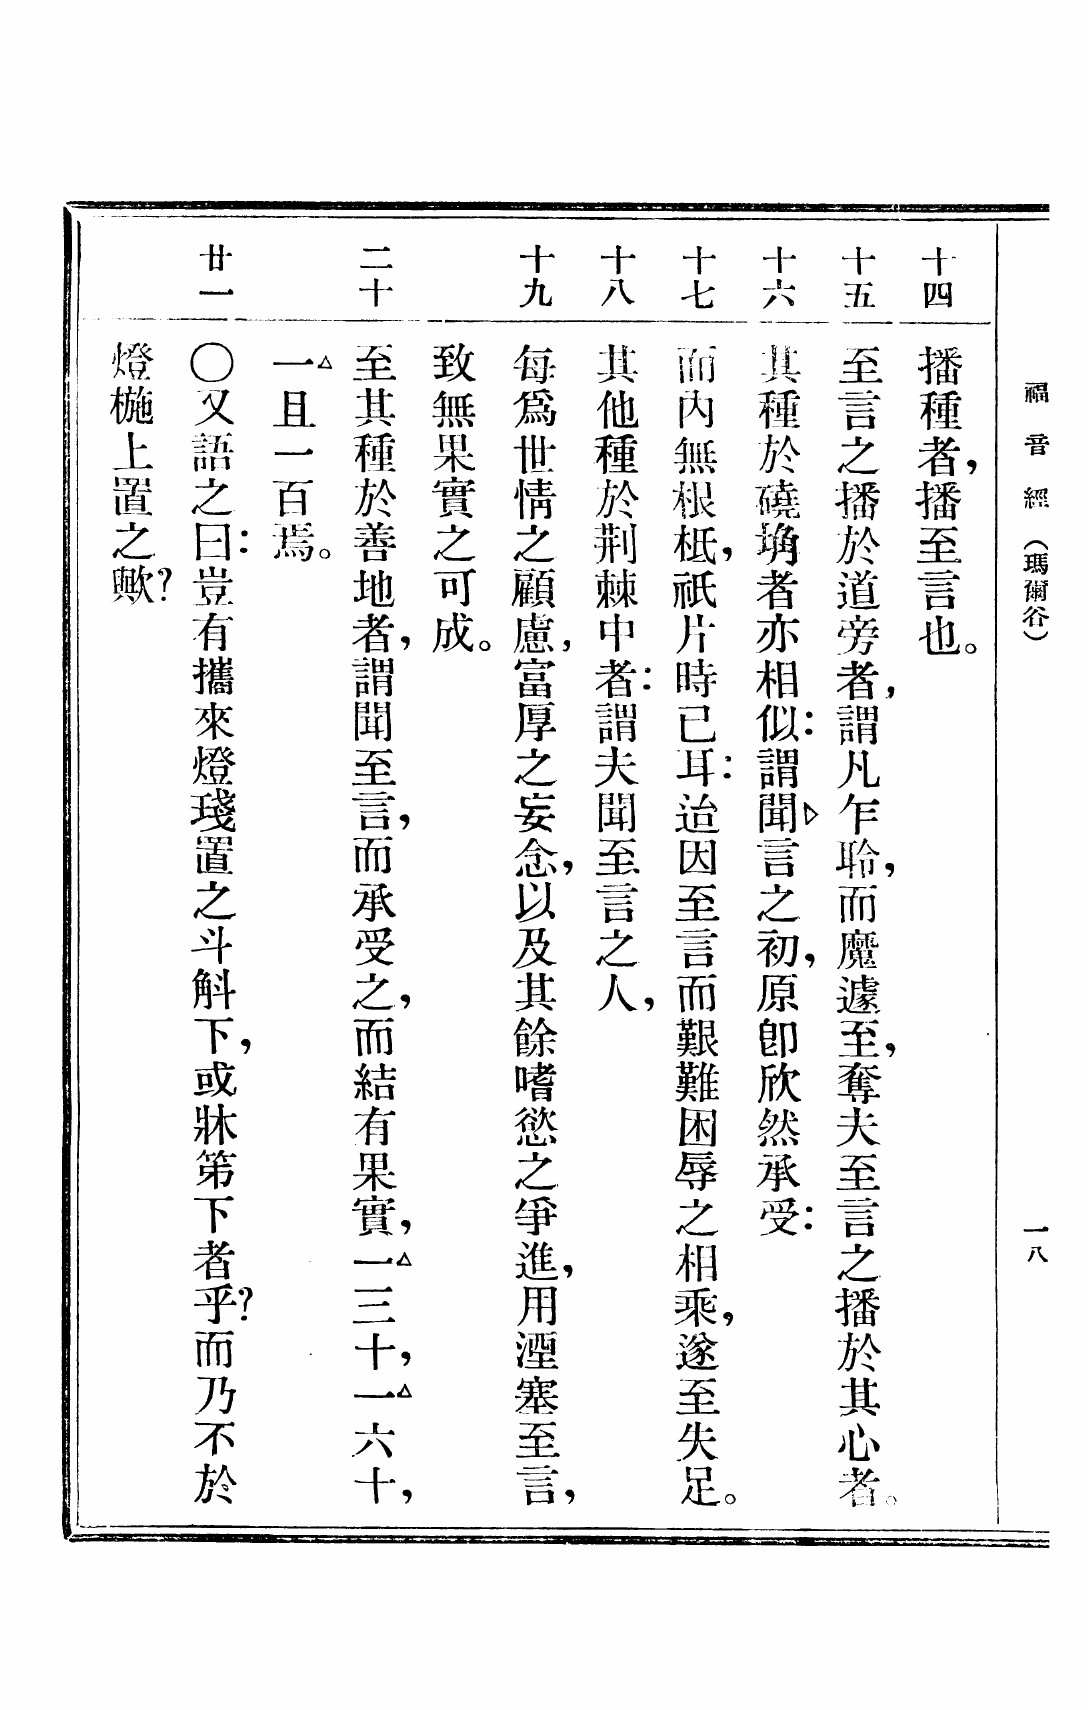 福音經(瑪爾谷) 一八
十四 播種者,播至言也。
十五 至言之播於道旁者,謂凡乍聆,而魔遽至,奪夫至言之播於其心者。
十六 其種於磽埆者亦相似:謂聞言之初,原卽欣然承受:
十七 而內無根柢,祇片時已耳:迨因至言而艱難困辱之相乘,遂至失足。
十八 其他種於荆棘中者:謂夫聞至言之人,
十九 每爲世情之顧慮,富厚之妄念,以及其餘嗜慾之爭進,用湮塞至言,
致無果實之可成。
二十 至其種於善地者,謂聞至言,而承受之,而結有果實,一三十,一六十,
一且一百焉。
廿一 〇又語之曰:豈有攜來燈琖置之斗斛下,或牀笫下者乎?而乃不於
燈椸上置之歟?